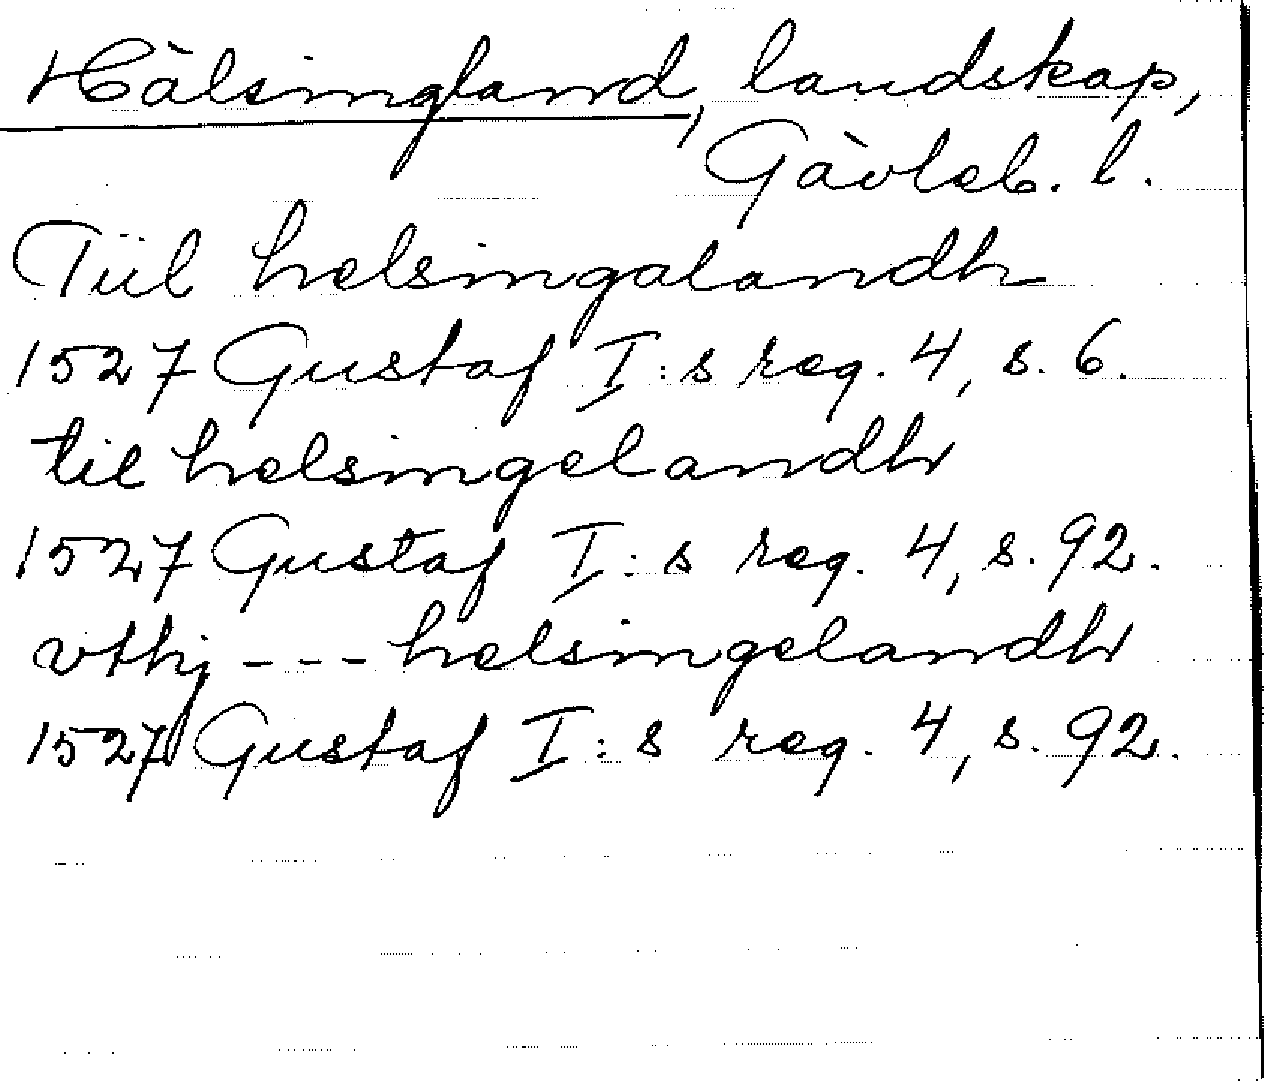 Hälsingland, landskap,
Gävleb. l.
Tiil helsingalandh
1527 Gustaf I:s reg. 4, s. 6.
til helsingelandh
1527 Gustaf I:s reg. 4, s. 92.
vthj --- helsingelandh
1527 Gustaf I:s reg. 4, s. 92.